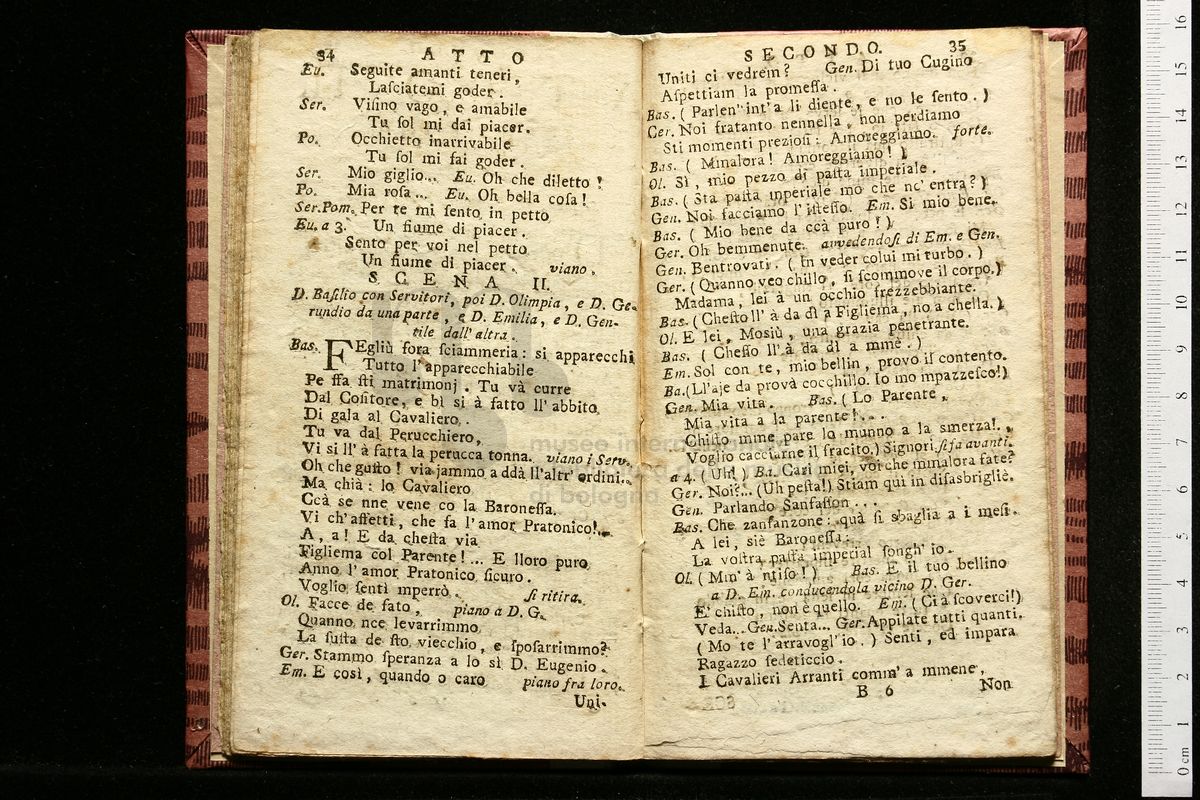 34 ATTO
Eu. Seguite amanti teneri,
Laſciatemi goder.
Ser. Viſino vago, e amabile
Tu ſol mi dai piacer.
Po. Occhietto inarrivabile
Tu ſol mi fai goder.
Ser. Mio giglio... Eu. Oh che diletto!
Po. Mia roſa... Eu. Oh bella coſa!
Ser.Pom. Per te mi ſento in petto
Eu. a 3. Un fiume di piacer.
Sento per voi nel petto
Un fiume di piacer. viano.
SCENA II.
D. Baſilio con Servitori, poi D. Olimpia, e D. Ge-
rundio da una parte, e D. Emilia, e D. Gen-
tile dall' altra.
Bas. FEgliù fora ſciammeria: si apparecchi
Tutto l'apparecchiabile
Pe ffa ſti matrimonj. Tu và curre
Dal Coſitore, e bì si à fatto ll' abbito
Di gala al Cavaliero.
Tu va dal Perucchiero,
Vi si ll' à fatta la perucca tonna. viano i Serv.
Oh che guſto! via jammo a ddà ll'altr' ordini.
Ma chià: lo Cavaliero
Ccà se nne vene co la Baroneſſa.
Vi ch'affetti, che fa l'amor Pratonico!..
A, a! E da cheſta via
Figliema col Parente!... E lloro puro
Anno l'amor Pratonico ſicuro.
Voglio ſentì mperrò. ſi ritira.
Ol. Facce de fato, piano a D. G.
Quanno nce levarrimmo
La ſuſta de ſto viecchio, e ſpoſarrimmo?
Ger. Stammo ſperanza a lo sì D. Eugenio.
Em. E così, quando o caro piano fra loro.
Uni-
SECONDO. 35
Uniti ci vedrem? Gen. Di tuo Cugino
Aſpettiam la promeſſa.
Bas. (Parlen' int'a li diente, e no le ſento.)
Ger. Noi fratanto nennella, non perdiamo
Sti momenti prezioſi: Amoreggiamo. forte.
Bas. (Minalora! Amoreggiamo!)
Ol. Sì, mio pezzo di paſta imperiale.
Bas. (Sta paſta mperiale mo che nc' entra?)
Gen. Noi facciamo l'iſteſſo. Em. Sì mio bene.
Bas. (Mio bene da ccà puro!)
Ger. Oh bemmenute. avvedendoſi di Em. e Gen.
Gen. Bentrovati. (In veder colui mi turbo.)
Ger. (Quanno veo chillo, ſi ſcommove il corpo.)
Madama, lei à un occhio frezzebbiante.
Bas. (Cheſto ll' à da dì a Figliema, no a chella.)
Ol. E lei, Mosiù, una grazia penetrante.
Bas. (Cheſſo ll' à da dì a mme.)
Em. Sol con te, mio bellin, provo il contento.
Ba. (Ll'aje da provà cocchillo. Io mo mpazzeſco!)
Gen. Mia vita. Bas. (Lo Parente,
Mia vita a la parente!...
Chiſto mme pare lo munno a la smerza!.
Voglio cacciarne il fracito.) Signori. ſi fa avanti.
a 4. (Uh!) Ba. Cari miei, voi che mmalora fate?
Ger. Noi?... (Uh peſta!) Stiam quì in diſasbrigliè.
Gen. Parlando Sanfaſſon...
Bas. Che zanfanzone: quà ſi sbaglia a i meſi.
A lei, siè Baroneſſa:
La voſtra paſta imperial ſongh' io.
Ol. (Mm' à ntiſo!) Bas. E il tuo bellino
a D. Em. conducendola vicino D. Ger.
E' chiſto, non è quello. Em. (Ci à ſcoverci!)
Veda... Gen. Senta... Ger. Appilate tutti quanti.
(Mo te l'arravogl'io.) Senti, ed impara
Ragazzo ſedeticcio.
I Cavalieri Arranti comm' a mmene,
B 6 Non
museo inter
di bologna
0 cm 1 2 3 4 5 6 7 8 9 10 11 12 13 14 15 16